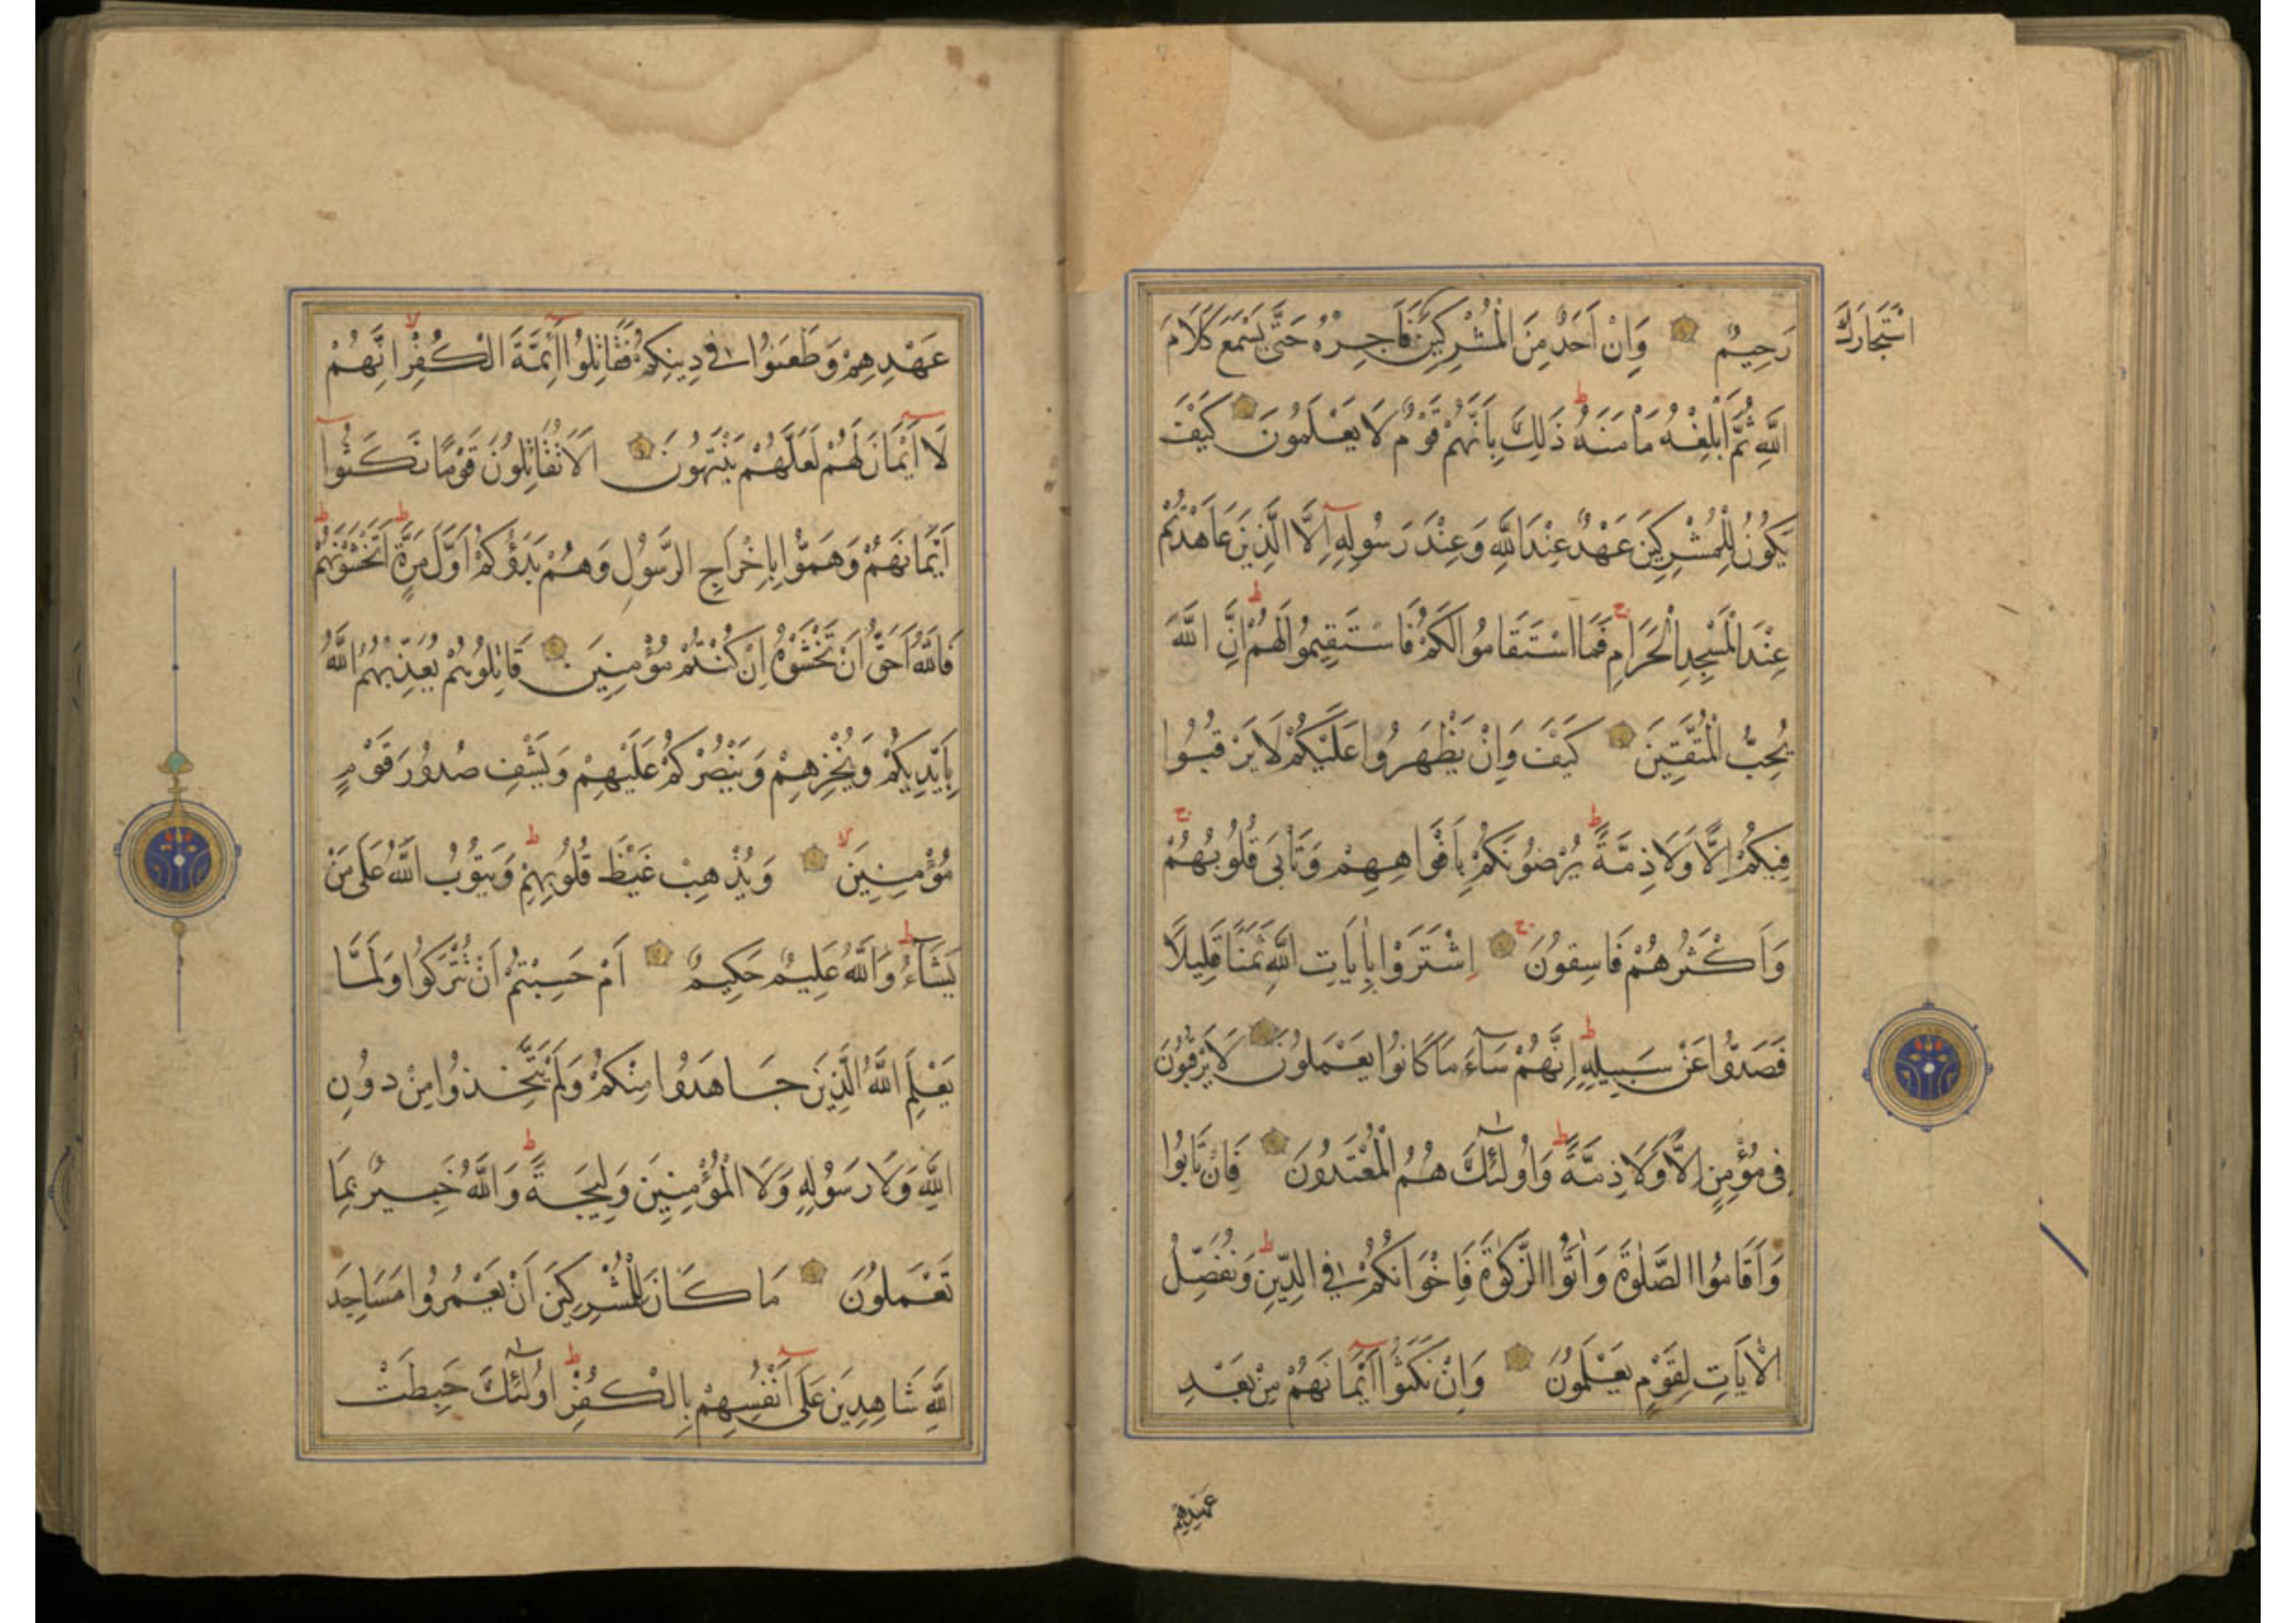 رَحِيمٌ وَاِنْ اَحَدٌ مِنَ الْمُشْرِكِينَ فَاَجِرْهُ حَتّٰى يَسْمَعَ كَلَامَ
اسْتَجَارَكَ
اللّٰهِ ثُمَّ اَبْلِغْهُ مَاْمَنَهُ ذَلِكَ بِاَنَّهُمْ قَوْمٌ لَا يَعْلَمُونَ كَيْفَ
يَكُونُ لِلْمُشْرِكِينَ عَهْدٌ عِنْدَ اللّٰهِ وَعِنْدَ رَسُولِهِ اِلَّا الَّذِينَ عَاهَدْتُمْ
عِنْدَ الْمَسْجِدِ الْحَرَامِ فَمَا اسْتَقَامُوا لَكُمْ فَاسْتَقِيمُوا لَهُمْ اِنَّ اللّٰهَ
يُحِبُّ الْمُتَّقِينَ كَيْفَ وَاِنْ يَظْهَرُوا عَلَيْكُمْ لَا يَرْقُبُوا
فِيكُمْ اِلًّا وَلَا ذِمَّةً يُرْضُونَكُمْ بِاَفْوَاهِهِمْ وَتَاْبَى قُلُوبُهُمْ
وَاَكْثَرُهُمْ فَاسِقُونَ اِشْتَرَوْا بِاٰيَاتِ اللّٰهِ ثَمَنًا قَلِيلًا
فَصَدُّوا عَنْ سَبِيلِهِ اِنَّهُمْ سَآءَ مَا كَانُوا يَعْمَلُونَ لَا يَرْقُبُونَ
فِى مُؤْمِنٍ اِلًّا وَلَا ذِمَّةً وَاُولٰئِكَ هُمُ الْمُعْتَدُونَ فَاِنْ تَابُوا
وَاَقَامُوا الصَّلٰوةَ وَاٰتَوُا الزَّكٰوةَ فَاِخْوَانُكُمْ فِى الدِّينِ وَنُفَصِّلُ
الْاٰيَاتِ لِقَوْمٍ يَعْلَمُونَ وَاِنْ نَكَثُوا اَيْمَانَهُمْ مِنْ بَعْدِ
عَهْدِهِمْ
عَهْدِهِمْ وَطَعَنُوا فِى دِينِكُمْ فَقَاتِلُوا اَئِمَّةَ الْكُفْرِ اِنَّهُمْ
لَا اَيْمَانَ لَهُمْ لَعَلَّهُمْ يَنْتَهُونَ اَلَا تُقَاتِلُونَ قَوْمًا نَكَثُوا
اَيْمَانَهُمْ وَهَمُّوا بِاِخْرَاجِ الرَّسُولِ وَهُمْ بَدَؤُكُمْ اَوَّلَ مَرَّةٍ اَتَخْشَوْنَهُمْ
فَاللّٰهُ اَحَقُّ اَنْ تَخْشَوْهُ اِنْ كُنْتُمْ مُؤْمِنِينَ قَاتِلُوهُمْ يُعَذِّبْهُمُ اللّٰهُ
بِاَيْدِيكُمْ وَيُخْزِهِمْ وَيَنْصُرْكُمْ عَلَيْهِمْ وَيَشْفِ صُدُورَ قَوْمٍ
مُؤْمِنِينَ وَيُذْهِبْ غَيْظَ قُلُوبِهِمْ وَيَتُوبُ اللّٰهُ عَلَى مَنْ
يَشَآءُ وَاللّٰهُ عَلِيمٌ حَكِيمٌ اَمْ حَسِبْتُمْ اَنْ تُتْرَكُوا وَلَمَّا
يَعْلَمِ اللّٰهُ الَّذِينَ جَاهَدُوا مِنْكُمْ وَلَمْ يَتَّخِذُوا مِنْ دُونِ
اللّٰهِ وَلَا رَسُولِهِ وَلَا الْمُؤْمِنِينَ وَلِيجَةً وَاللّٰهُ خَبِيرٌ بِمَا
تَعْمَلُونَ مَا كَانَ لِلْمُشْرِكِينَ اَنْ يَعْمُرُوا مَسَاجِدَ
اللّٰهِ شَاهِدِينَ عَلَى اَنْفُسِهِمْ بِالْكُفْرِ اُولٰئِكَ حَبِطَتْ